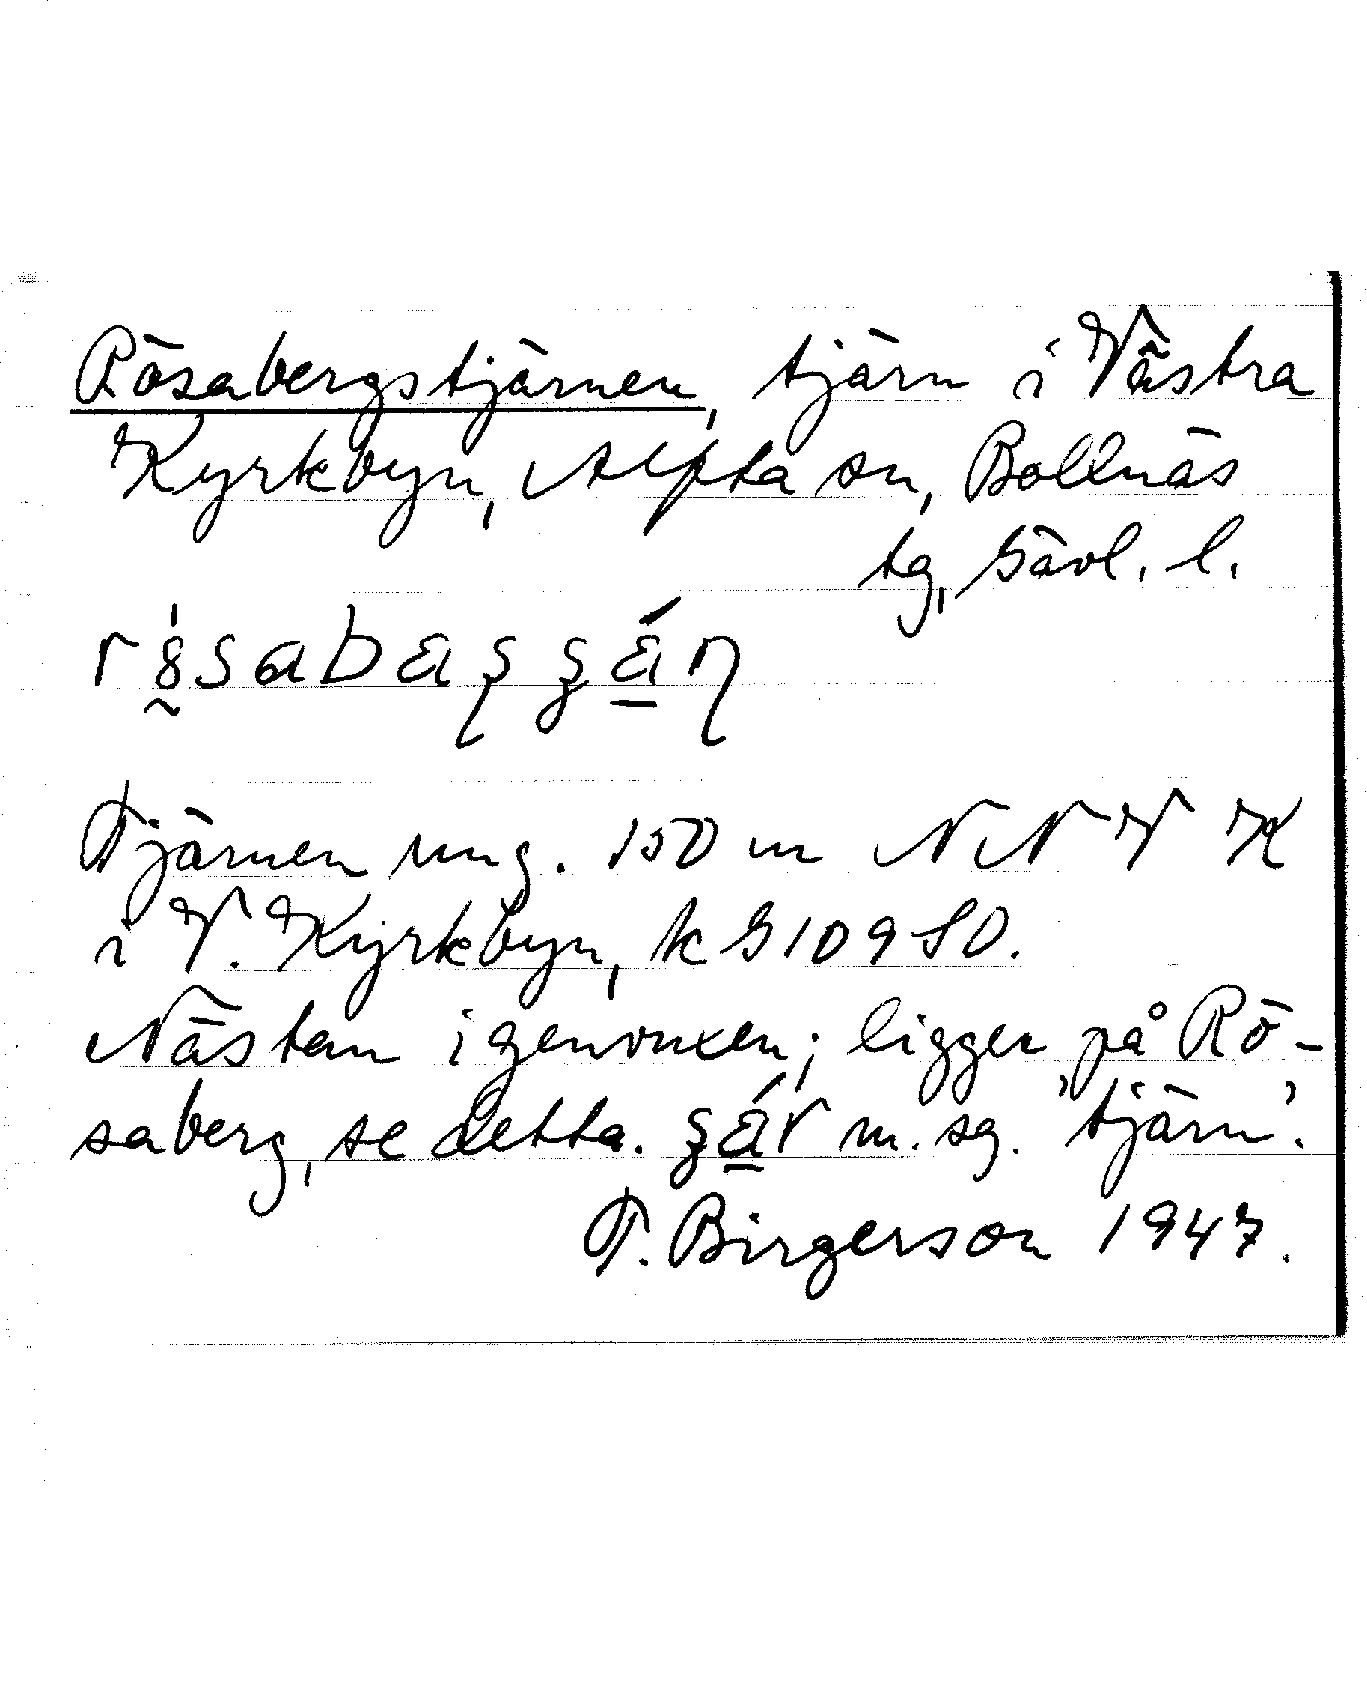 Rösabergstjärnen, tjärn i Västra
Kyrkbyn, Alfta sn, Bollnäs
tg, Gävl. l.
Tjärnen ung. 150 m NNV K
i V. Kyrkbyn, k G 109 SO.
Nästan igenvuxen; ligger på Rö-
saberg, se detta. m. sg. 'tjärn'.
T. Birgerson 1947.